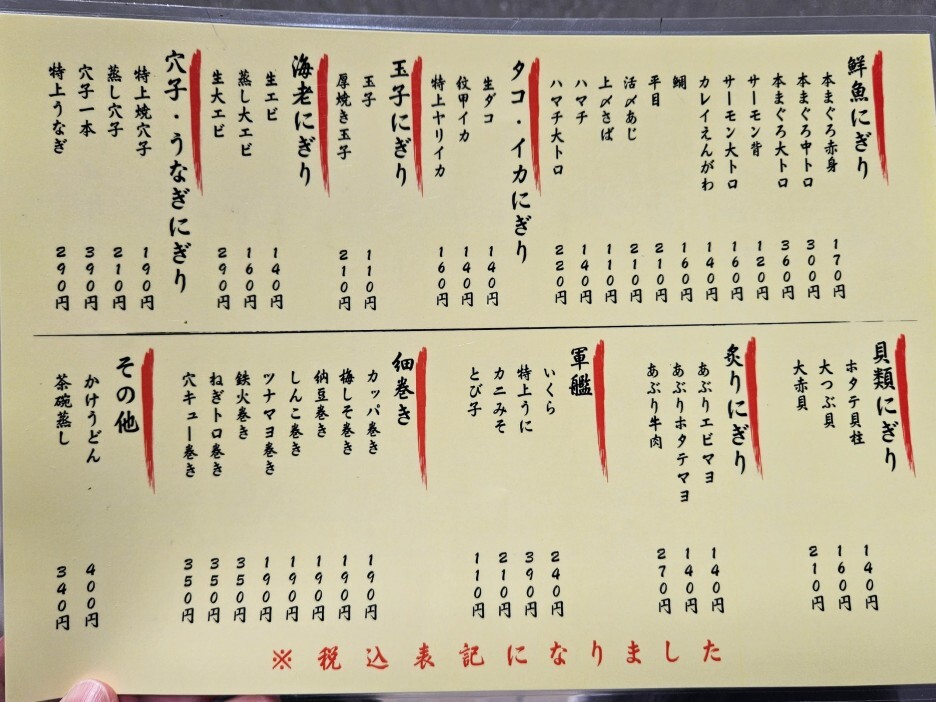 鮮魚にぎり
本まぐろ赤身 170円
本まぐろ中トロ 300円
本まぐろ大トロ 360円
サーモン背 120円
サーモン大トロ 160円
カレイえんがわ 140円
鯛 160円
平目 210円
活〆あじ 210円
上〆さば 110円
ハマチ 140円
ハマチ大トロ 220円
タコ・イカにぎり
生ダコ 140円
紋甲イカ 140円
特上ヤリイカ 160円
玉子にぎり
玉子 110円
厚焼き玉子 210円
海老にぎり
生エビ 140円
蒸し大エビ 160円
生大エビ 290円
穴子・うなぎにぎり
特上焼穴子 190円
蒸し穴子 210円
穴子一本 390円
特上うなぎ 290円
貝類にぎり
ホタテ貝柱 140円
大つぶ貝 160円
大赤貝 210円
炙りにぎり
あぶりエビマヨ 140円
あぶりホタテマヨ 140円
あぶり牛肉 270円
軍艦
いくら 240円
特上うに 390円
カニみそ 210円
とび子 110円
細巻き
カッパ巻き 190円
梅しそ巻き 190円
納豆巻き 190円
しんこ巻き 190円
ツナマヨ巻き 190円
鉄火巻き 350円
ねぎトロ巻き 350円
穴キュー巻き 350円
その他
かけうどん 400円
茶碗蒸し 340円
※税込表記になりました